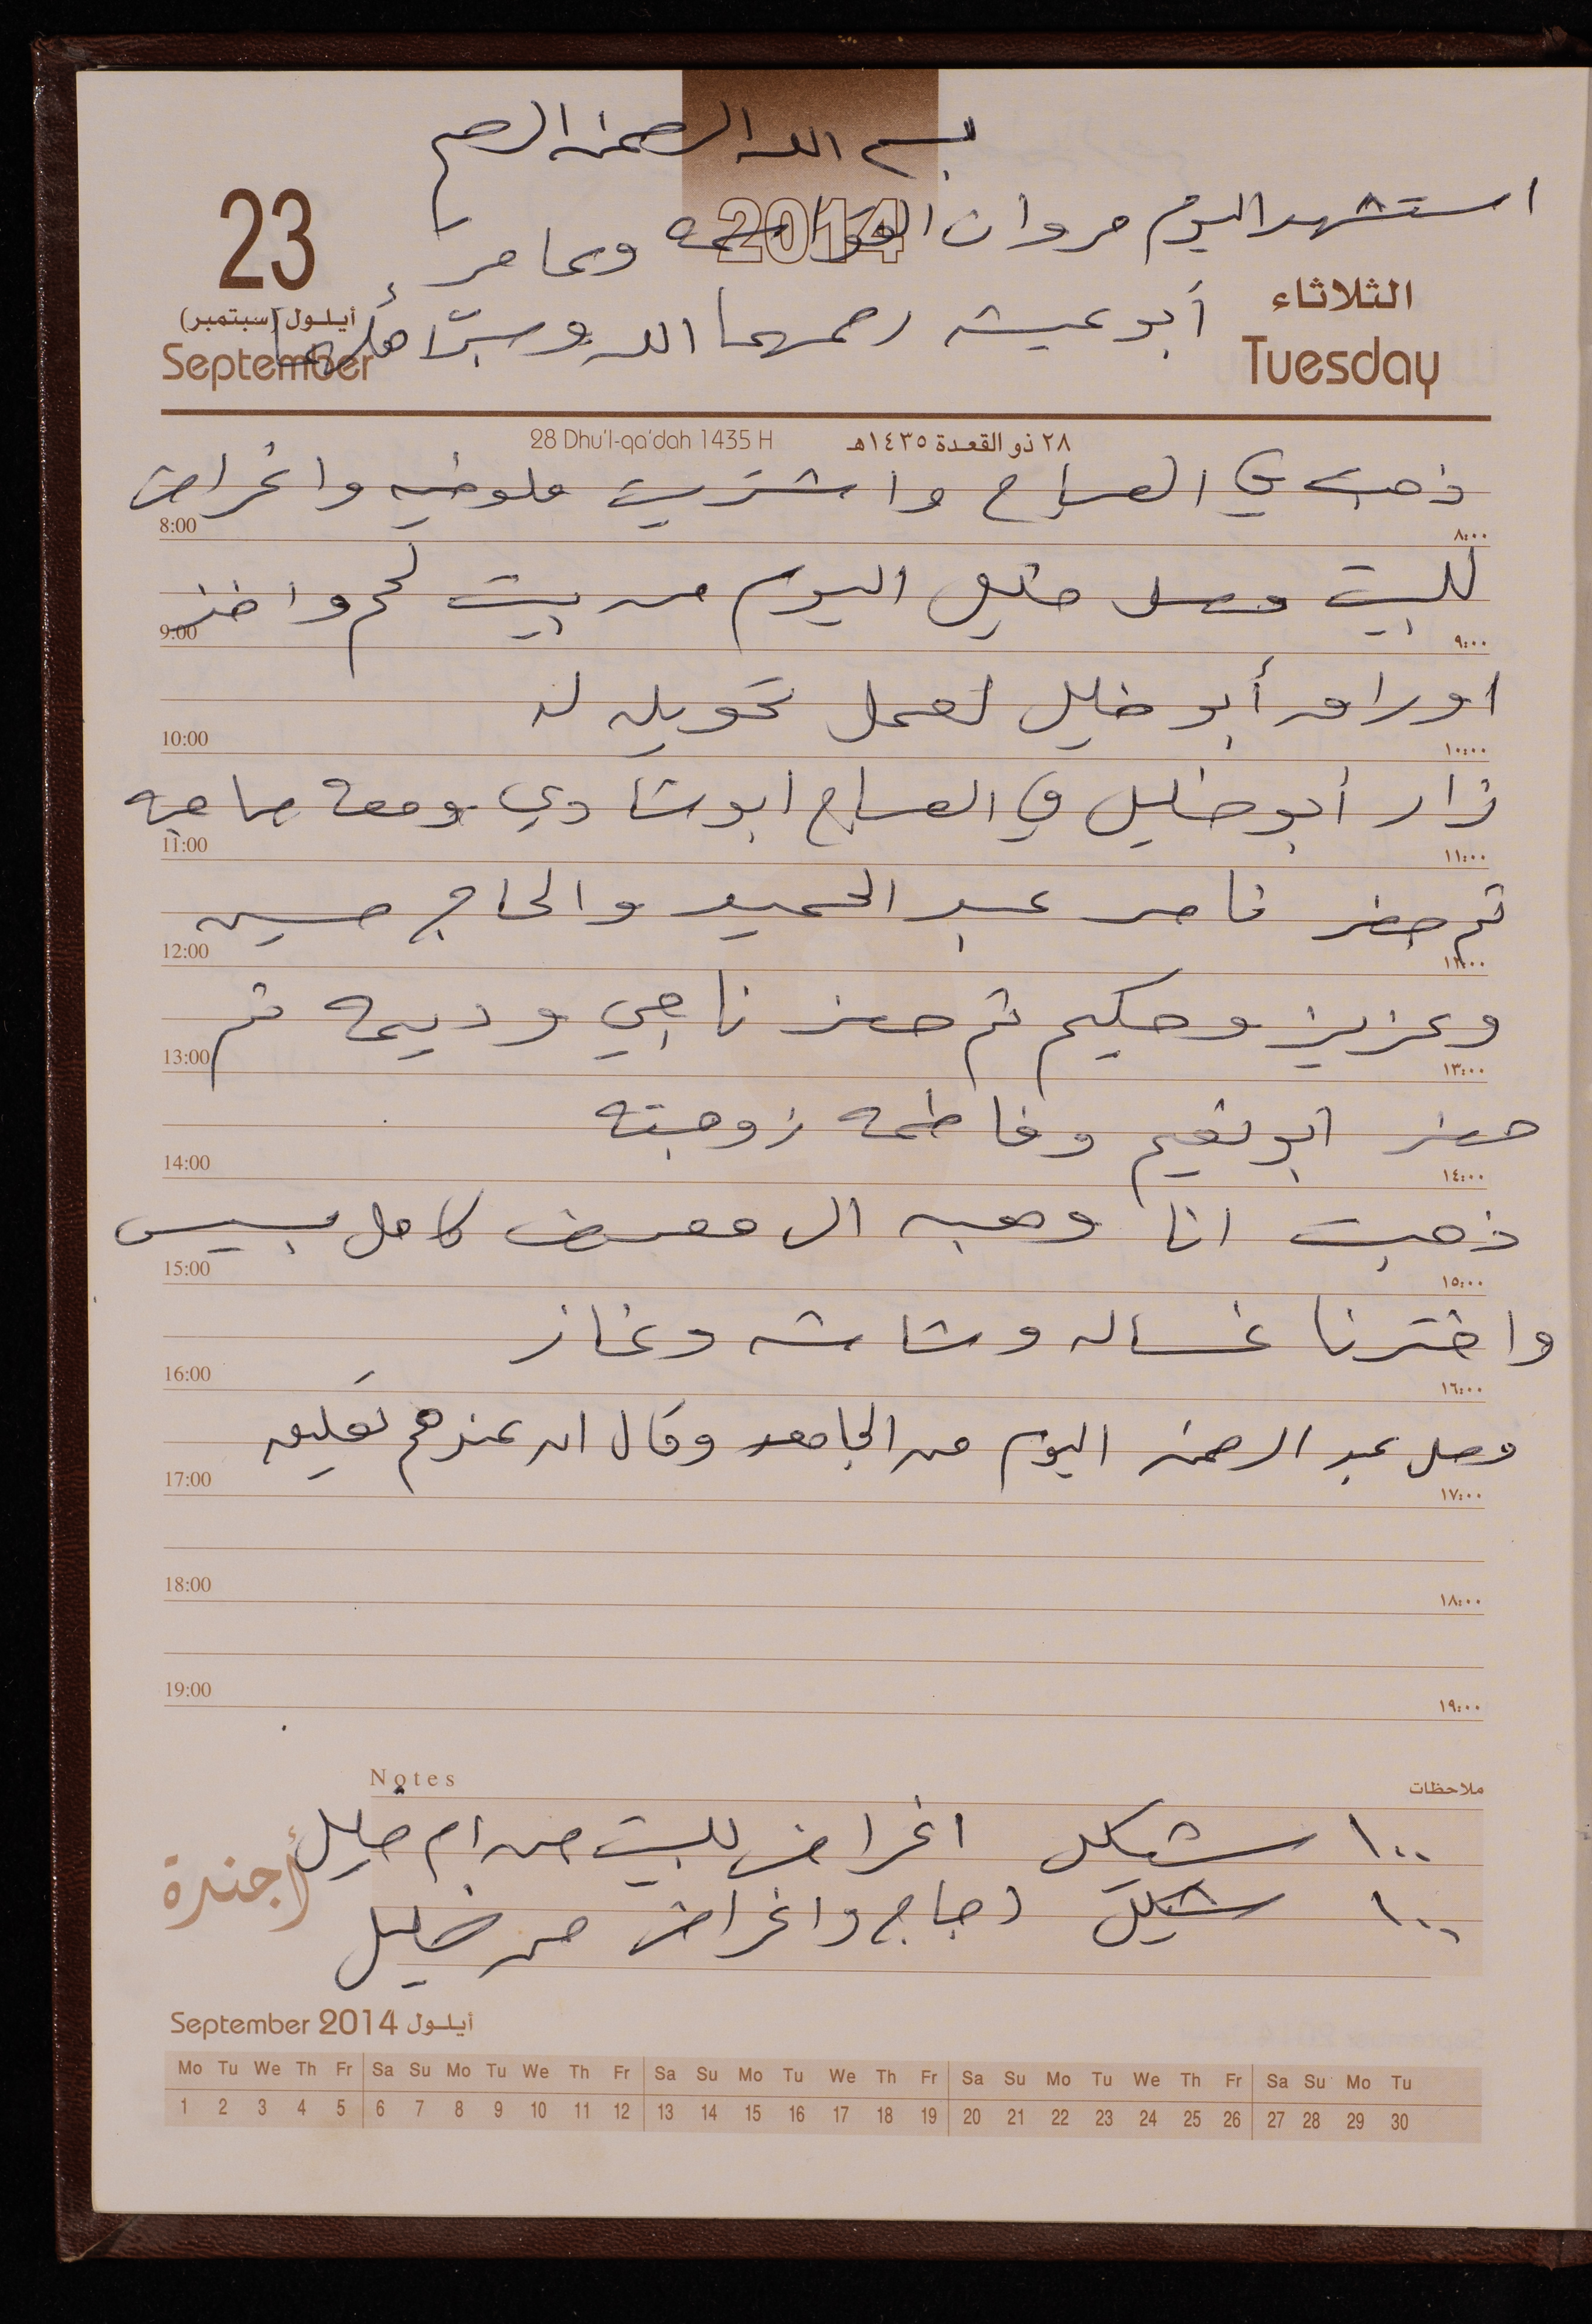 بسم الله الرحمن الرحيم
2014
استشهد اليوم مروان القواسمه وعامر
أبو عيشه رحمهما الله وصبر أهلهما
23
أيلول (سبتمبر)
September
الثلاثاء
Tuesday
28 Dhu'l-qa'dah 1435 H
٢٨ ذو القعدة ١٤٣٥هـ
ذهبت في الصباح واشتريت ملوخيه واغراض
8:00 ٨:٠٠
للبيت وصل خليل اليوم من بيت لحم واخذ
9:00 ٩:٠٠
اوراق أبو خليل لعمل تحويله له
10:00 ١٠:٠٠
زار أبو خليل في الصباح ابو شادي ومعه صاحبه
11:00 ١١:٠٠
ثم حضر ناصر عبد الحميد والحاج حسين
12:00 ١٢:٠٠
وعزيز وحكيم ثم حضر ناجي وديمه ثم
13:00 ١٣:٠٠
حضر ابو نعيم وفاطمه زوجته
14:00 ١٤:٠٠
ذهبت انا وهبه الى معرض كامل بسيس
15:00 ١٥:٠٠
واخترنا غساله وشاشه وغاز
16:00 ١٦:٠٠
وصل عبد الرحمن اليوم من الجامعه وقال ان عندهم تعليق
17:00 ١٧:٠٠
18:00 ١٨:٠٠
19:00 ١٩:٠٠
Notes ملاحظات
١٠٠ شيكل اغراض للبيت من ام خليل
أجندة
١٠٠ شيكل دجاج واغراض من خليل
September 2014 أيلول
Mo Tu We Th Fr Sa Su Mo Tu We Th Fr Sa Su Mo Tu We Th Fr Sa Su Mo Tu We Th Fr Sa Su Mo Tu
1 2 3 4 5 6 7 8 9 10 11 12 13 14 15 16 17 18 19 20 21 22 23 24 25 26 27 28 29 30